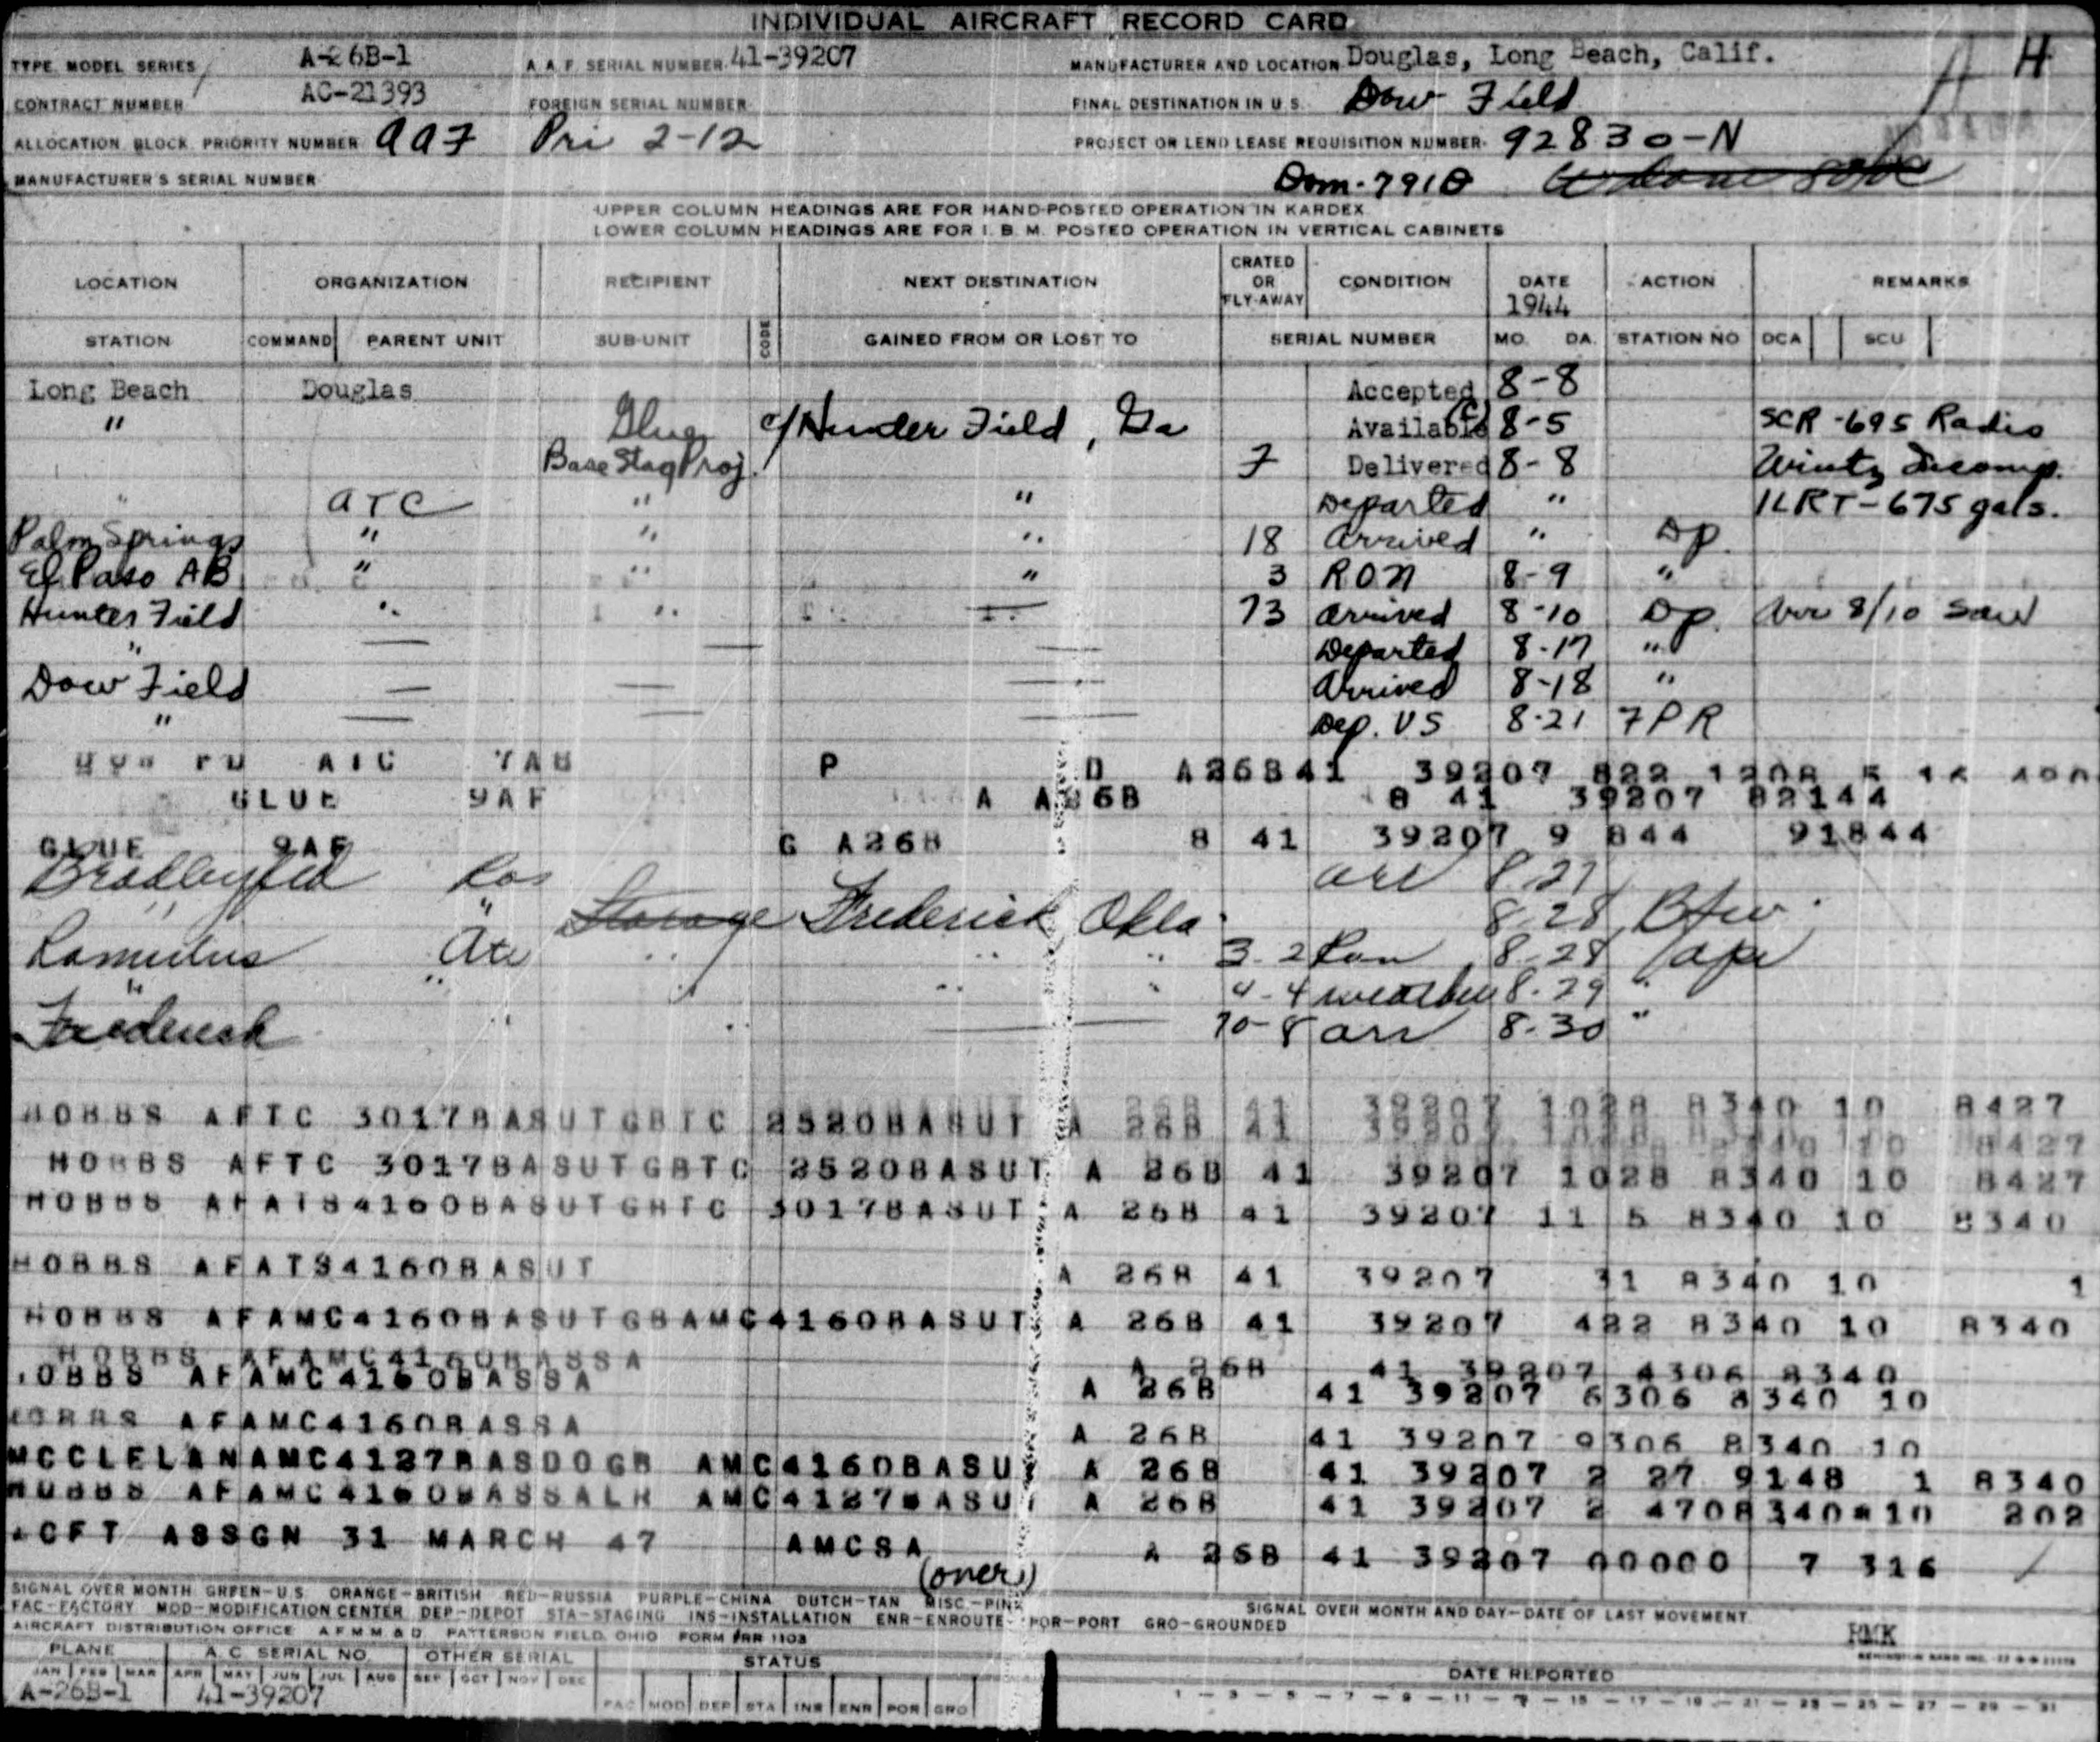 INDIVIDUAL AIRCRAFT RECORD CARD
TYPE MODEL SERIES A-26B-1 A.A.F. SERIAL NUMBER 41-39207 MANUFACTURER AND LOCATION Douglas, Long Beach, Calif. H
CONTRACT NUMBER AC-21393 FOREIGN SERIAL NUMBER FINAL DESTINATION IN U.S. Dow Field
ALLOCATION BLOCK PRIORITY NUMBER AAF Pri 2-12 PROJECT OR LEND LEASE REQUISITION NUMBER 92830-N
MANUFACTURER'S SERIAL NUMBER Dom-7910
UPPER COLUMN HEADINGS ARE FOR HAND-POSTED OPERATION IN KARDEX
LOWER COLUMN HEADINGS ARE FOR I.B.M. POSTED OPERATION IN VERTICAL CABINETS
LOCATION ORGANIZATION RECIPIENT NEXT DESTINATION CRATED OR FLY-AWAY CONDITION DATE 1944 ACTION REMARKS
STATION COMMAND PARENT UNIT SUB-UNIT CODE GAINED FROM OR LOST TO SERIAL NUMBER MO. DA. STATION NO DCA SCU
Long Beach Douglas Accepted 8-8
" Glue c/Hunter Field, Ga Available (C) 8-5 SCR-695 Radio
Base Stag Proj. 7 Delivered 8-8 Wintz Incomp.
" ATC " " Departed " 1LRT-675 gals.
Palm Springs " " " 18 Arrived " Dp.
El Paso AB " " " 3 RON 8-9 "
Hunter Field " " " 73 Arrived 8-10 Dp. Arr 8/10 Sav
" — — — Departed 8-17 "
Dow Field — — — Arrived 8-18 "
" — — — Dep. US 8-21 7PR
ATC 9AB P D A26B41 39207 822 1208 5
GLUE 9AF A A26B 8 41 39207 82144
GLUE 9AF G A26B 8 41 39207 9 844 91844
Bradley Fld arr 8.27
" " Storage Frederick Okla. 8.28
Romulus Atc " " " 3-2 Ron 8-28
" " " " 4-4 weather 8-29 "
Frederick " — 10-8 arr 8-30 "
HOBBS AFTC 3017BASUTGBTC 2520BASUT A 26B 41 39207 1028 8340 10 8427
HOBBS AFTC 3017BASUTGBTC 2520BASUT A 26B 41 39207 1028 8340 10 8427
HOBBS AFATS4160BASUTGBTC 3017BASUT A 26B 41 39207 11 5 8340 10 8340
HOBBS AFATS4160BASUT A 26B 41 39207 31 8340 10 1
HOBBS AFAMC4160BASUTGBAMC4160BASUT A 26B 41 39207 422 8340 10 8340
HOBBS AFAMC4160BASSA A 26B 41 39207 4306 8340
HOBBS AFAMC4160BASSA A 26B 41 39207 6306 8340 10
HOBBS AFAMC4160BASSA A 26B 41 39207 9306 8340 10
MCCLELANAMC4127BASDOGB AMC4160BASU A 26B 41 39207 2 27 9148 1 8340
HOBBS AFAMC4160BASSALH AMC4127BASU A 26B 41 39207 2 4708340*10 202
ACFT ASSGN 31 MARCH 47 AMCSA A 26B 41 39207 00000 7 316
(over)
SIGNAL OVER MONTH GREEN-U.S. ORANGE-BRITISH RED-RUSSIA PURPLE-CHINA DUTCH-TAN MISC.-PINK SIGNAL OVER MONTH AND DAY-DATE OF LAST MOVEMENT
FAC-FACTORY MOD-MODIFICATION CENTER DEP-DEPOT STA-STAGING INS-INSTALLATION ENR-ENROUTE POR-PORT GRO-GROUNDED
AIRCRAFT DISTRIBUTION OFFICE A.F.M.M. & D. PATTERSON FIELD, OHIO FORM PRR 1103 RMK
PLANE A C SERIAL NO. OTHER SERIAL STATUS DATE REPORTED
JAN FEB MAR APR MAY JUN JUL AUG SEP OCT NOV DEC
A-26B-1 41-39207 FAC MOD DEP STA INS ENR POR GRO 1 - 3 - 5 - 7 - 9 - 11 - 13 - 15 - 17 - 19 - 21 - 23 - 25 - 27 - 29 - 31